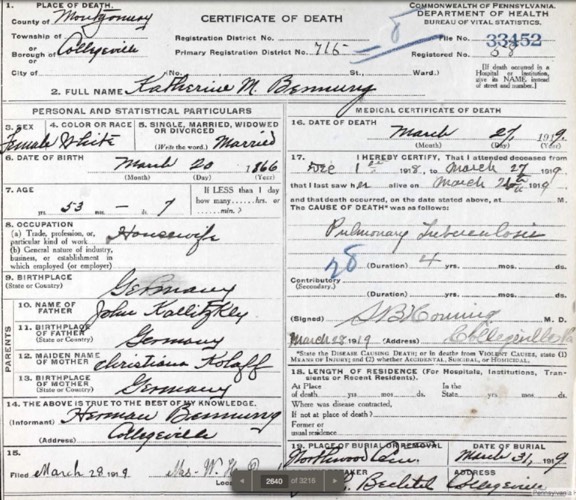 1. PLACE OF DEATH.
County of Montgomery
Township of
or
Borough of Collegeville
or
City of (No. St., Ward.)
CERTIFICATE OF DEATH
Registration District No.
Primary Registration District No. 716-
COMMONWEALTH OF PENNSYLVANIA.
DEPARTMENT OF HEALTH
BUREAU OF VITAL STATISTICS.
File No. 33452
Registered No. 68
[If death occurred in a
Hospital or Institution,
give its NAME instead
of street and number.]
2. FULL NAME Katherine M. Bennung
PERSONAL AND STATISTICAL PARTICULARS
3. SEX 4. COLOR OR RACE 5. SINGLE, MARRIED, WIDOWED
OR DIVORCED
Female White (Write the word.) Married
6. DATE OF BIRTH
March 20 1866
(Month) (Day) (Year)
7. AGE If LESS than 1 day
how many......hrs. or
yrs. 53 mos. - ds. 7 min.?
8. OCCUPATION
(a) Trade, profession, or,
particular kind of work Housewife
(b) General nature of industry,
business, or establishment in
which employed (or employer)
9. BIRTHPLACE
(State or Country) Germany
PARENTS
10. NAME OF
FATHER John Kallitzkly
11. BIRTHPLACE
OF FATHER
(State or Country) Germany
12. MAIDEN NAME
OF MOTHER Christian Kolaff
13. BIRTHPLACE
OF MOTHER
(State or Country) Germany
14. THE ABOVE IS TRUE TO THE BEST OF MY KNOWLEDGE.
(Informant) Herman Bennung
(Address) Collegeville
15.
Filed March 28 1919 Mrs. W.
MEDICAL CERTIFICATE OF DEATH
16. DATE OF DEATH
March 27 1919.
(Month) (Day) (Year)
17. I HEREBY CERTIFY, That I attended deceased from
Dec 1st 1918, to March 27 1919
that I last saw her alive on March 26th 1919
and that death occurred, on the date stated above, at M.
The CAUSE OF DEATH* was as follows:
Pulmonary Tuberculosis
28
(Duration) 4 yrs. mos. ds.
Contributory
(Secondary.)
(Duration) yrs. mos. ds.
(Signed) M. D.
March 28 1919 (Address) Collegeville Pa
*State the DISEASE CAUSING DEATH; or in deaths from VIOLENT CAUSES, state (1)
MEANS OF INJURY; and (2) whether ACCIDENTAL, SUICIDAL, or HOMICIDAL.
18. LENGTH OF RESIDENCE (For Hospitals, Institutions, Transients or Recent Residents).
At Place In the
of death yrs. mos. ds. State yrs. mos. ds.
Where was disease contracted,
If not at place of death?
Former or
usual residence
19. PLACE OF BURIAL OR REMOVAL DATE OF BURIAL
Northwood Cem. March 31, 1919
ADDRESS
Bechtel Collegeville
2640 of 3216
Pennsylvania